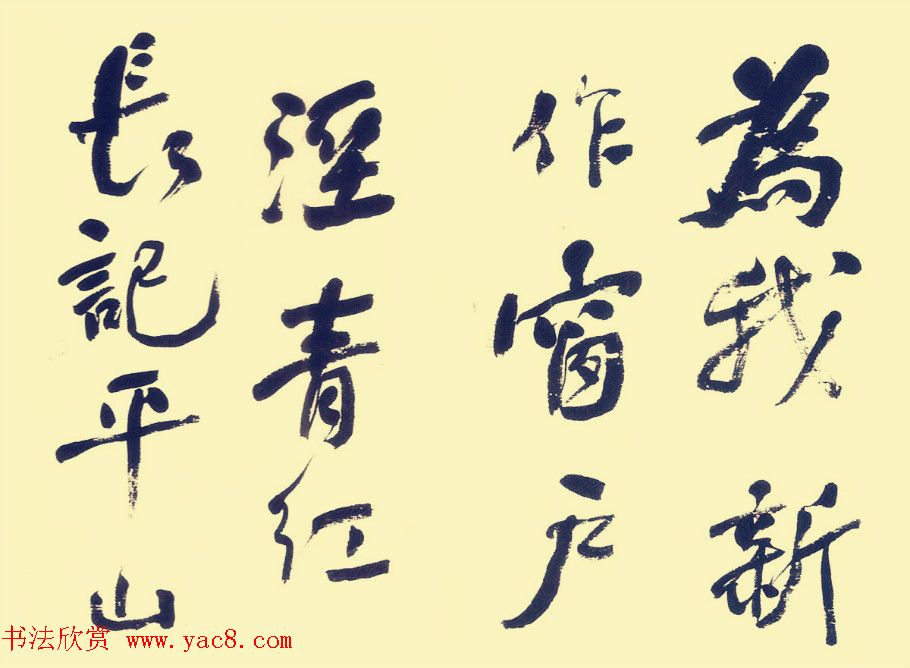 為我新
作窗户
溼青红
長记平山
书法欣赏 www.yac8.com